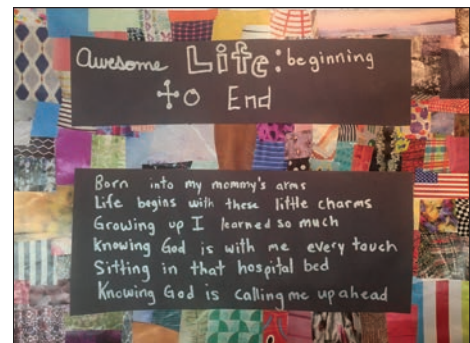 Awesome Life: beginning
to End
Born into my mommy's arms
Life begins with these little charms
Growing up I learned so much
Knowing God is with me every touch
Sitting in that hospital bed
Knowing God is calling me up ahead